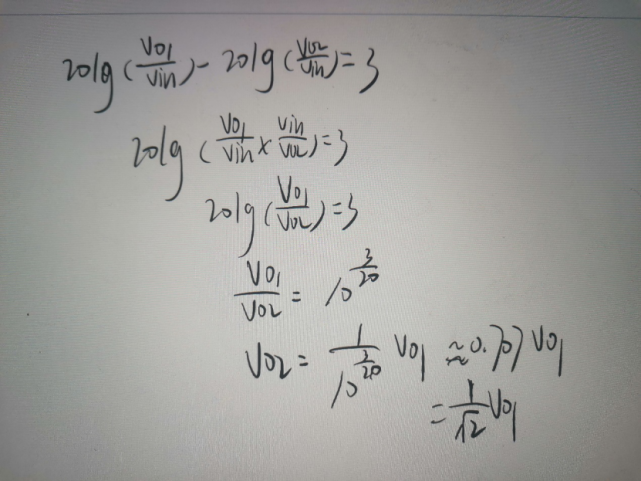 20lg(Vo1/Vin) - 20lg(Vo2/Vin) = 3
20lg(Vo1/Vin × Vin/Vo2) = 3
20lg(Vo1/Vo2) = 3
Vo1/Vo2 = 10^(3/20)
Vo2 = 1/10^(3/20) Vo1 ≈ 0.707 Vo1
= 1/√2 Vo1